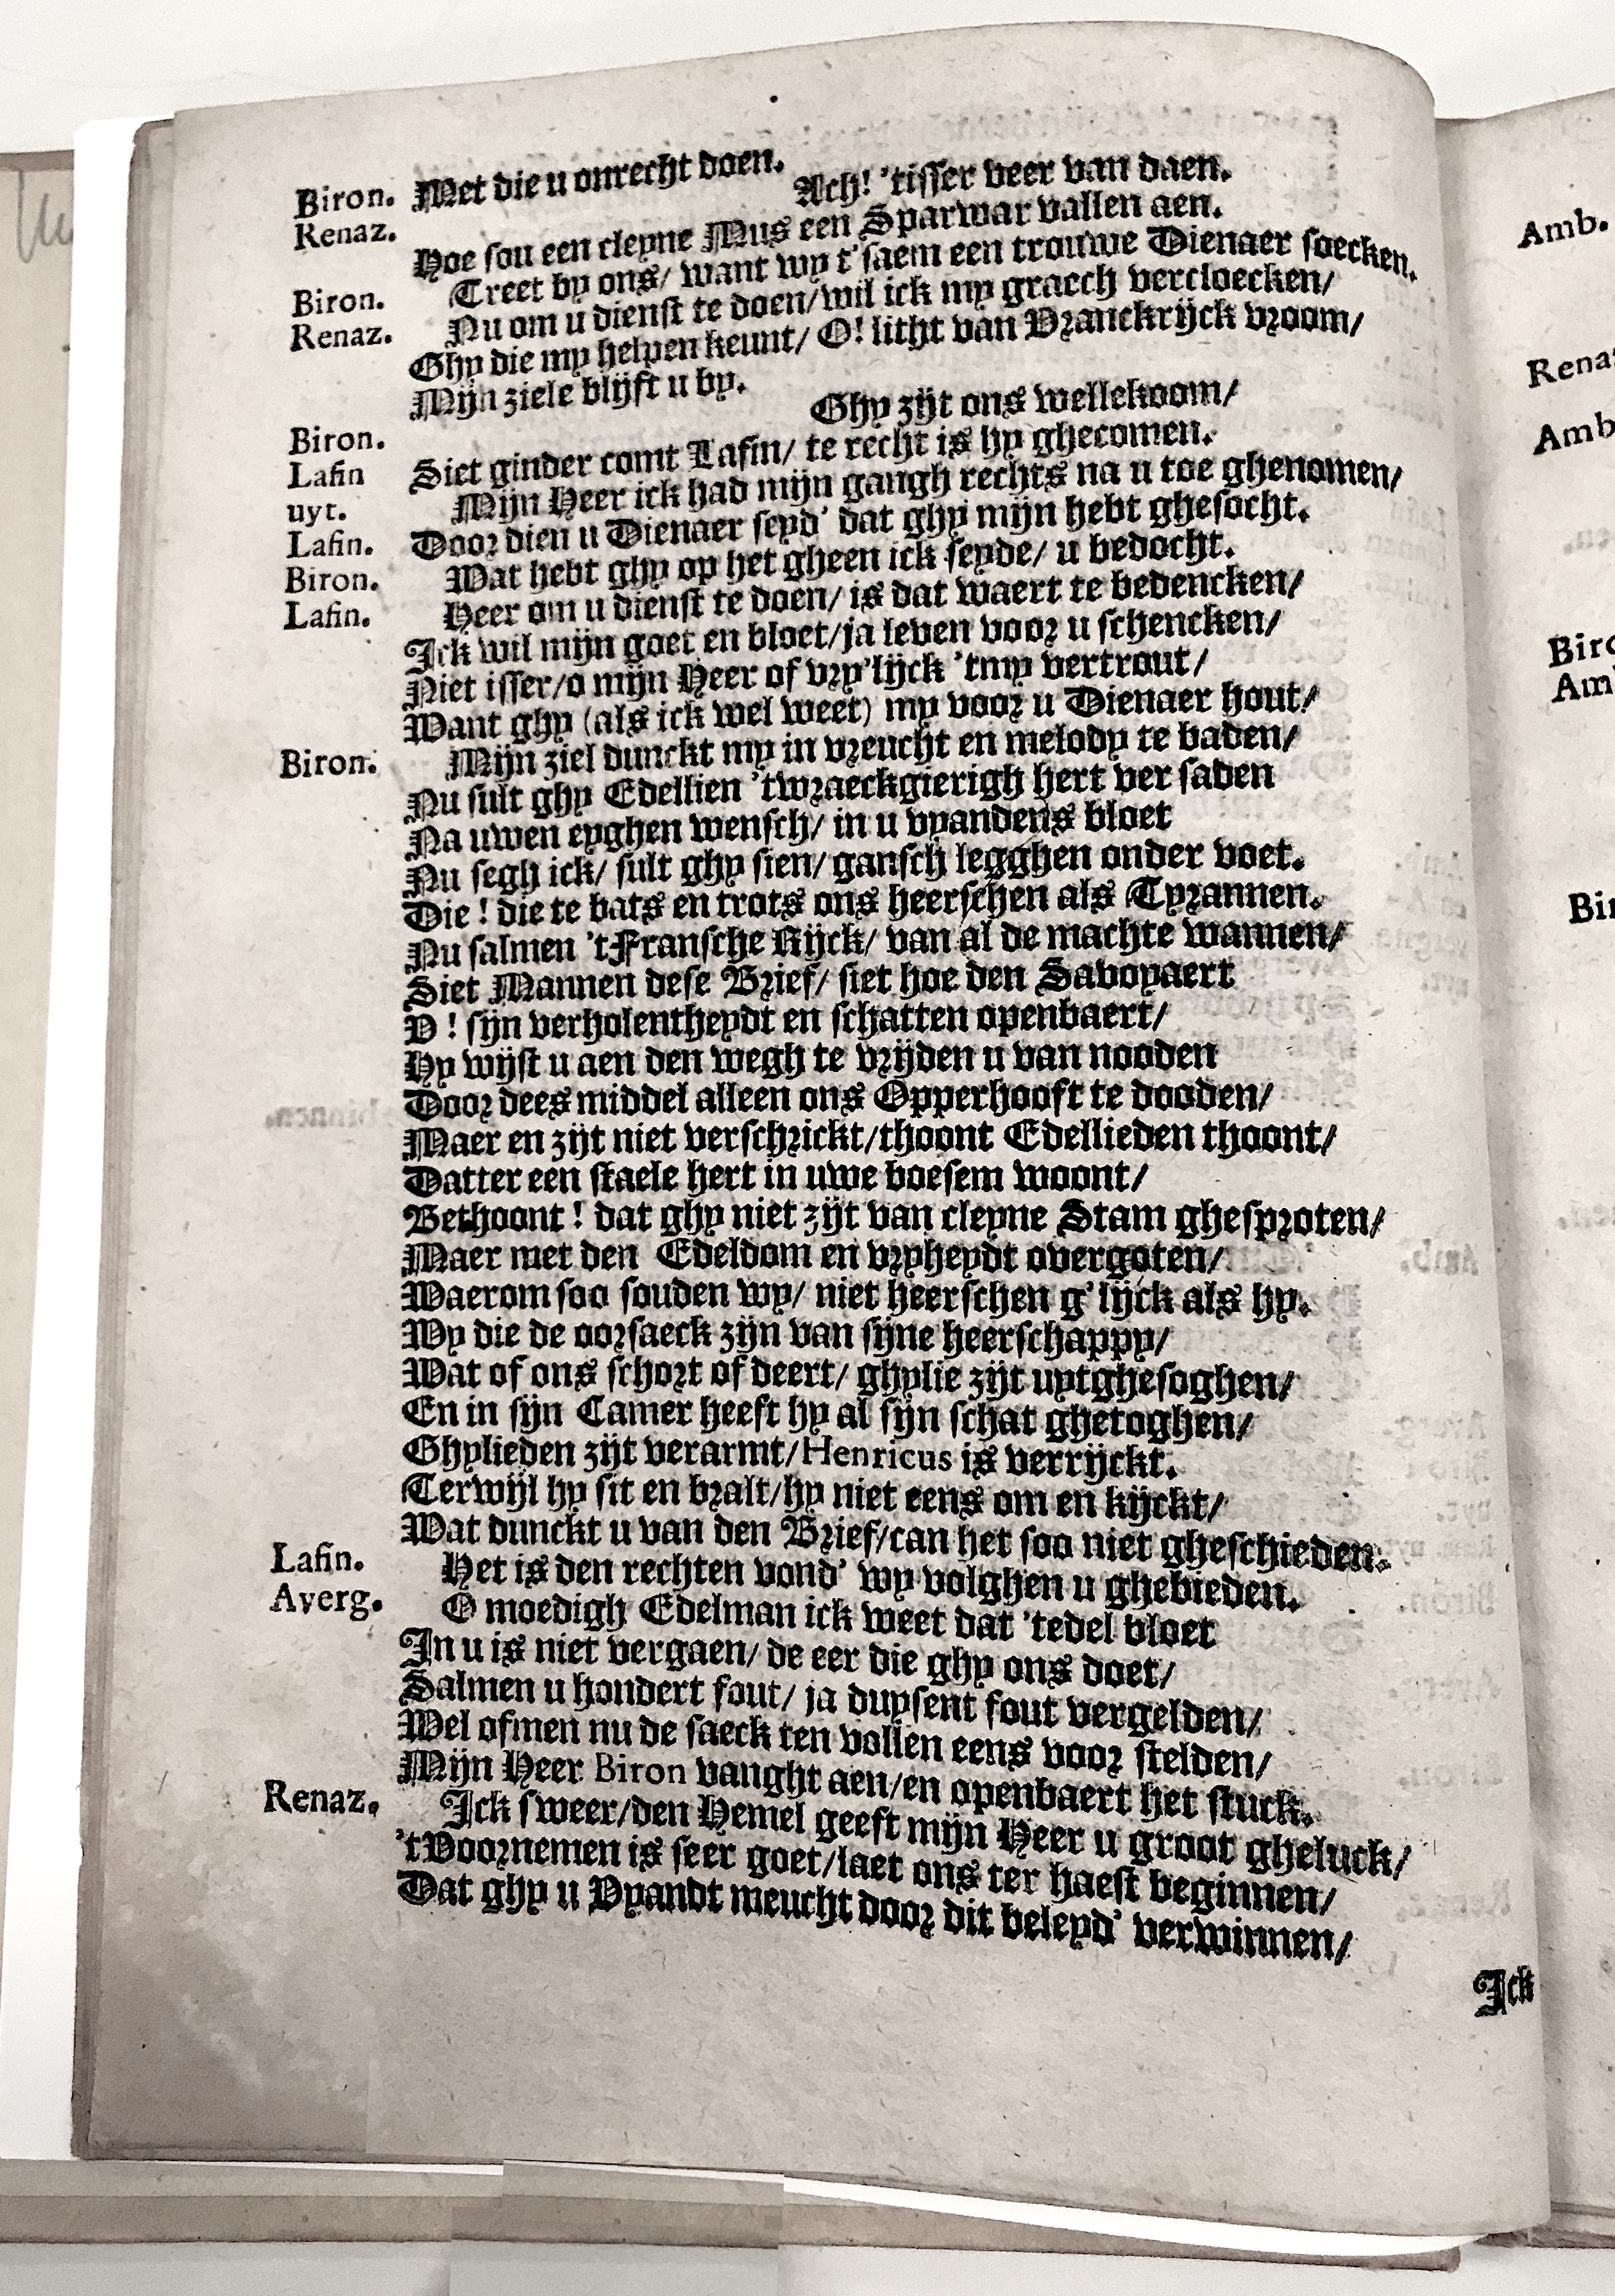 Biron. Met die u onrecht doen.
Renaz. Ach! 'tisser veer van daen.
Hoe sou een cleyne Mus een Sparwar vallen aen.
Biron. Treet by ons/ want wy t'saem een trouwe Dienaer soecken.
Renaz. Nu om u dienst te doen/wil ick my graech vercloecken/
Ghy die my helpen keunt/ O! litht van Vranckrijck vroom/
Mijn ziele blijft u by.
Biron. Ghy zijt ons wellekoom/
Lafin Siet ginder comt Lafin/ te recht is hy ghecomen.
uyt. Mijn Heer ick had mijn gangh rechts na u toe ghenomen/
Lafin. Door dien u Dienaer seyd' dat ghy mijn hebt ghesocht.
Biron. Wat hebt ghy op het gheen ick seyde/ u bedocht.
Lafin. Heer om u dienst te doen/ is dat waert te bedencken/
Ick wil mijn goet en bloet/ja leven voor u schencken/
Niet isser/o mijn Heer of vry'lijck 'tmy vertrout/
Want ghy (als ick wel weet) my voor u Dienaer hout/
Biron. Mijn ziel dunckt my in vreucht en melody te baden/
Nu sult ghy Edellien 'twraeckgierigh hert ver saden
Na uwen eyghen wensch/ in u vyandens bloet
Nu segh ick/ sult ghy sien/ gansch legghen onder voet.
Die ! die te bats en trots ons heerschen als Tyrannen.
Nu salmen 'tFransche Rijck/ van al de machte wannen/
Siet Mannen dese Brief/ siet hoe den Savoyaert
O ! sijn verholentheydt en schatten openbaert/
Hy wijst u aen den wegh te vrijden u van nooden
Door dees middel alleen ons Opperhooft te dooden/
Maer en zijt niet verschrickt/thoont Edellieden thoont/
Datter een staele hert in uwe boesem woont/
Bethoont ! dat ghy niet zijt van cleyne Stam ghesproten/
Maer met den Edeldom en vryheydt overgoten/
Waerom soo souden wy/ niet heerschen g'lijck als hy.
Wy die de oorsaeck zijn van sijne heerschappy/
Wat of ons schort of deert/ ghylie zijt uytghesoghen/
En in sijn Camer heeft hy al sijn schat ghetoghen/
Ghylieden zijt verarmt/Henricus is verrijckt.
Terwijl hy sit en bralt/hy niet eens om en kijckt/
Wat dunckt u van den Brief/can het soo niet gheschieden.
Lafin. Het is den rechten vond' wy volghen u ghebieden.
Averg. O moedigh Edelman ick weet dat 'tedel bloet
In u is niet vergaen/ de eer die ghy ons doet/
Salmen u hondert fout/ ja duysent fout vergelden/
Wel ofmen nu de saeck ten vollen eens voor stelden/
Mijn Heer Biron vanght aen/en openbaert het stuck.
Renaz. Ick sweer/den Hemel geeft mijn Heer u groot gheluck/
'tVoornemen is seer goet/laet ons ter haest beginnen/
Dat ghy u Vyandt meucht door dit beleyd' verwinnen/
Ick
Amb.
Amb.